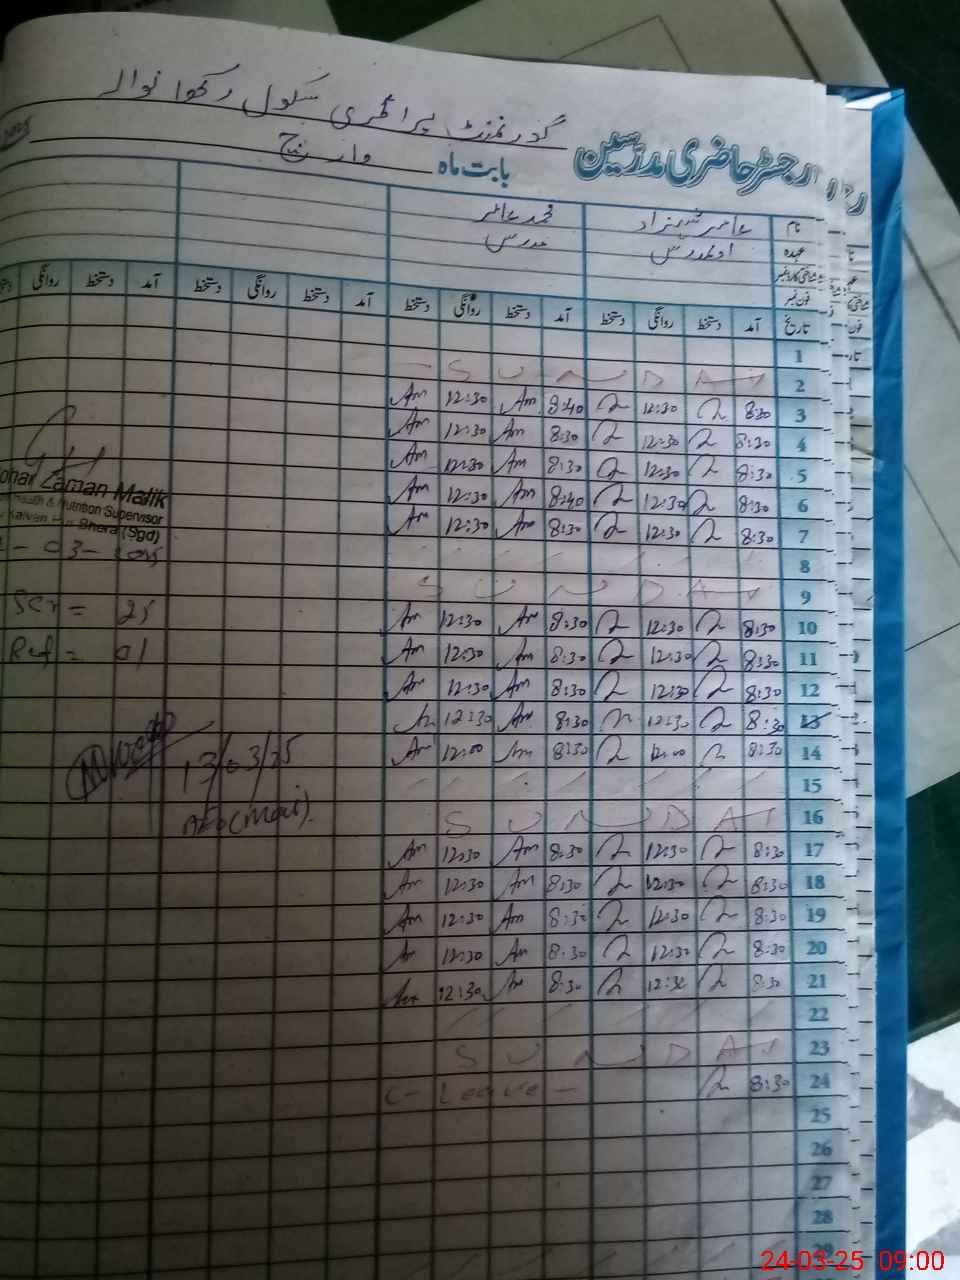 گورنمنٹ پرائمری سکول رکھوانوالہ
رجسٹر حاضری مدرسین
بابت ماہ مارچ
نام عامر شہزاد محمد عامر
عہدہ مدرس
فون نمبر
تاریخ آمد دستخط روانگی دستخط آمد دستخط روانگی دستخط آمد دستخط روانگی دستخط آمد دستخط روانگی
1
2 SUNDAY
3 8:30 12:30 8:40 Am 12:30 Am
4 8:30 12:30 8:30 Am 12:30 Am
5 8:30 12:30 8:30 Am 12:30 Am
6 8:30 12:30 8:40 Am 12:30 Am
7 8:30 12:30 8:30 Am 12:30 Am
8
9 SUNDAY
10 8:30 12:30 8:30 Am 12:30 Am
11 8:30 12:30 8:30 Am 12:30 Am
12 8:30 12:30 8:30 Am 12:30 Am
13 8:30 12:30 8:30 Am 12:30 Am
14 8:30 12:00 8:30 Am 12:00 Am
15
16 SUNDAY
17 8:30 12:30 8:30 Am 12:30 Am
18 8:30 12:30 8:30 Am 12:30 Am
19 8:30 12:30 8:30 Am 12:30 Am
20 8:30 12:30 8:30 Am 12:30 Am
21 8:30 12:30 8:30 Am 12:30 Am
22
23 SUNDAY
24 8:30 C-Leave-
25
26
27
28
29
Zaman Malik
Health & Nutrition Supervisor
Bhera (Sgd)
03-2025
Scr = 25
Ref = 01
13/03/25
AEO (Male)
24-03-25 09:00